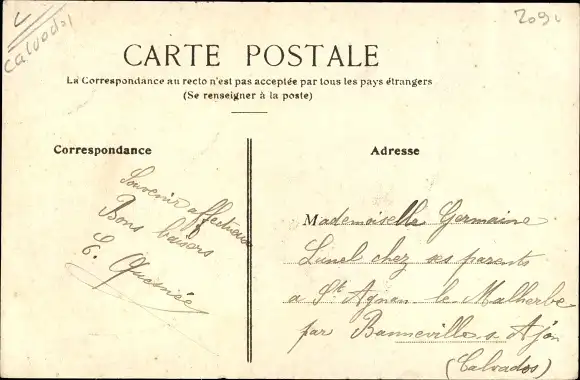 Calvados
CARTE POSTALE
La Correspondance au recto n'est pas acceptée par tous les pays étrangers
(Se renseigner à la poste)
Correspondance
Souvenir affectueux
Bons baisers
Adresse
Mademoiselle Germaine
Lunel chez ses parents
a Ste Agnan le Malherbe
par Banneville s Ajon
(Calvados)